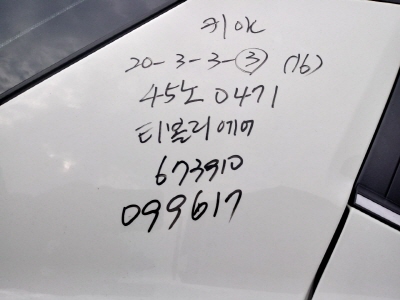 키OK
20-3-3-③ (16)
45노0471
티볼리에어
673910
099617